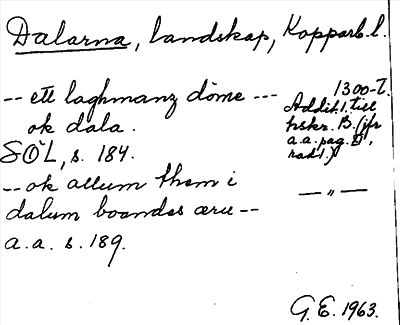 Dalarna, landskap, Kopparb.l.
1300-t.
-- ett laghmanz döme ---
Addit. 1. till
ok dala.
hskr. B. (jfr
a.a. pag. D,
SÖL, s. 184.
rad 1.)
-- ok allum them i
— „ —
dalum boandes æru --
a.a. s. 189.
G.E. 1963.